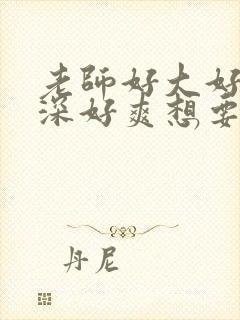 老師好大好
深好爽想要
丹尼